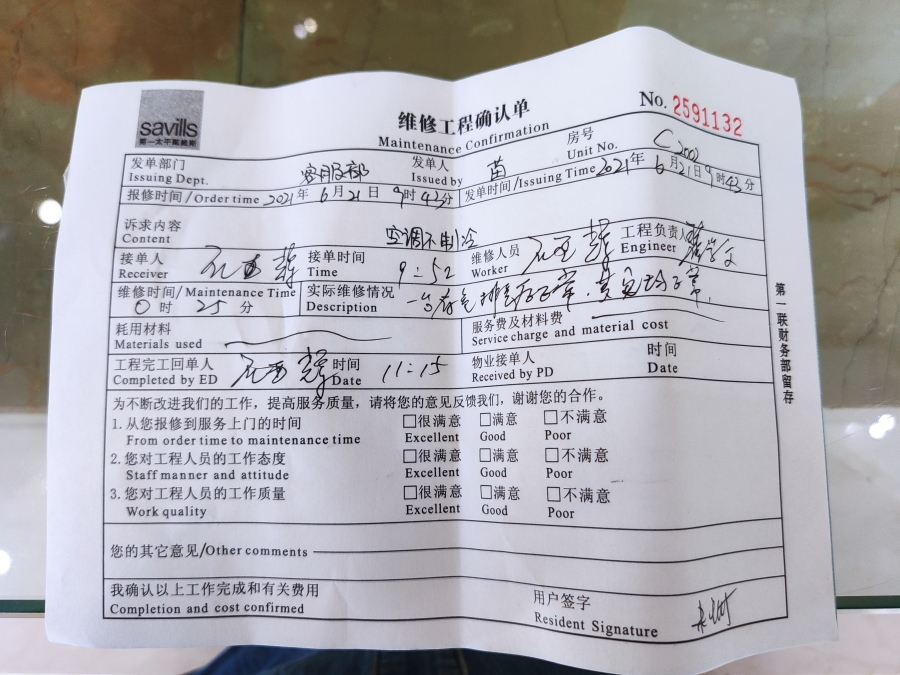 savills
第一太平戴维斯
维修工程确认单
Maintenance Confirmation
No. 2591132
发单部门 客服部 发单人 苗 房号 C2002
Issuing Dept. Issued by Unit No.
报修时间/Order time 2021年6月21日9时43分 发单时间/Issuing Time 2021年6月21日9时43分
诉求内容 空调不制冷
Content
接单人 接单时间 9:52 维修人员 工程负责人
Receiver Time Worker Engineer
维修时间/Maintenance Time 实际维修情况
0时25分 Description
耗用材料 服务费及材料费
Materials used Service charge and material cost
工程完工回单人 时间 11:15 物业接单人 时间
Completed by ED Date Received by PD Date
为不断改进我们的工作，提高服务质量，请将您的意见反馈我们，谢谢您的合作。
1.从您报修到服务上门的时间 □很满意 □满意 □不满意
From order time to maintenance time Excellent Good Poor
2.您对工程人员的工作态度 □很满意 □满意 □不满意
Staff manner and attitude Excellent Good Poor
3.您对工程人员的工作质量 □很满意 □满意 □不满意
Work quality Excellent Good Poor
您的其它意见/Other comments
我确认以上工作完成和有关费用 用户签字
Completion and cost confirmed Resident Signature
第一联财务部留存